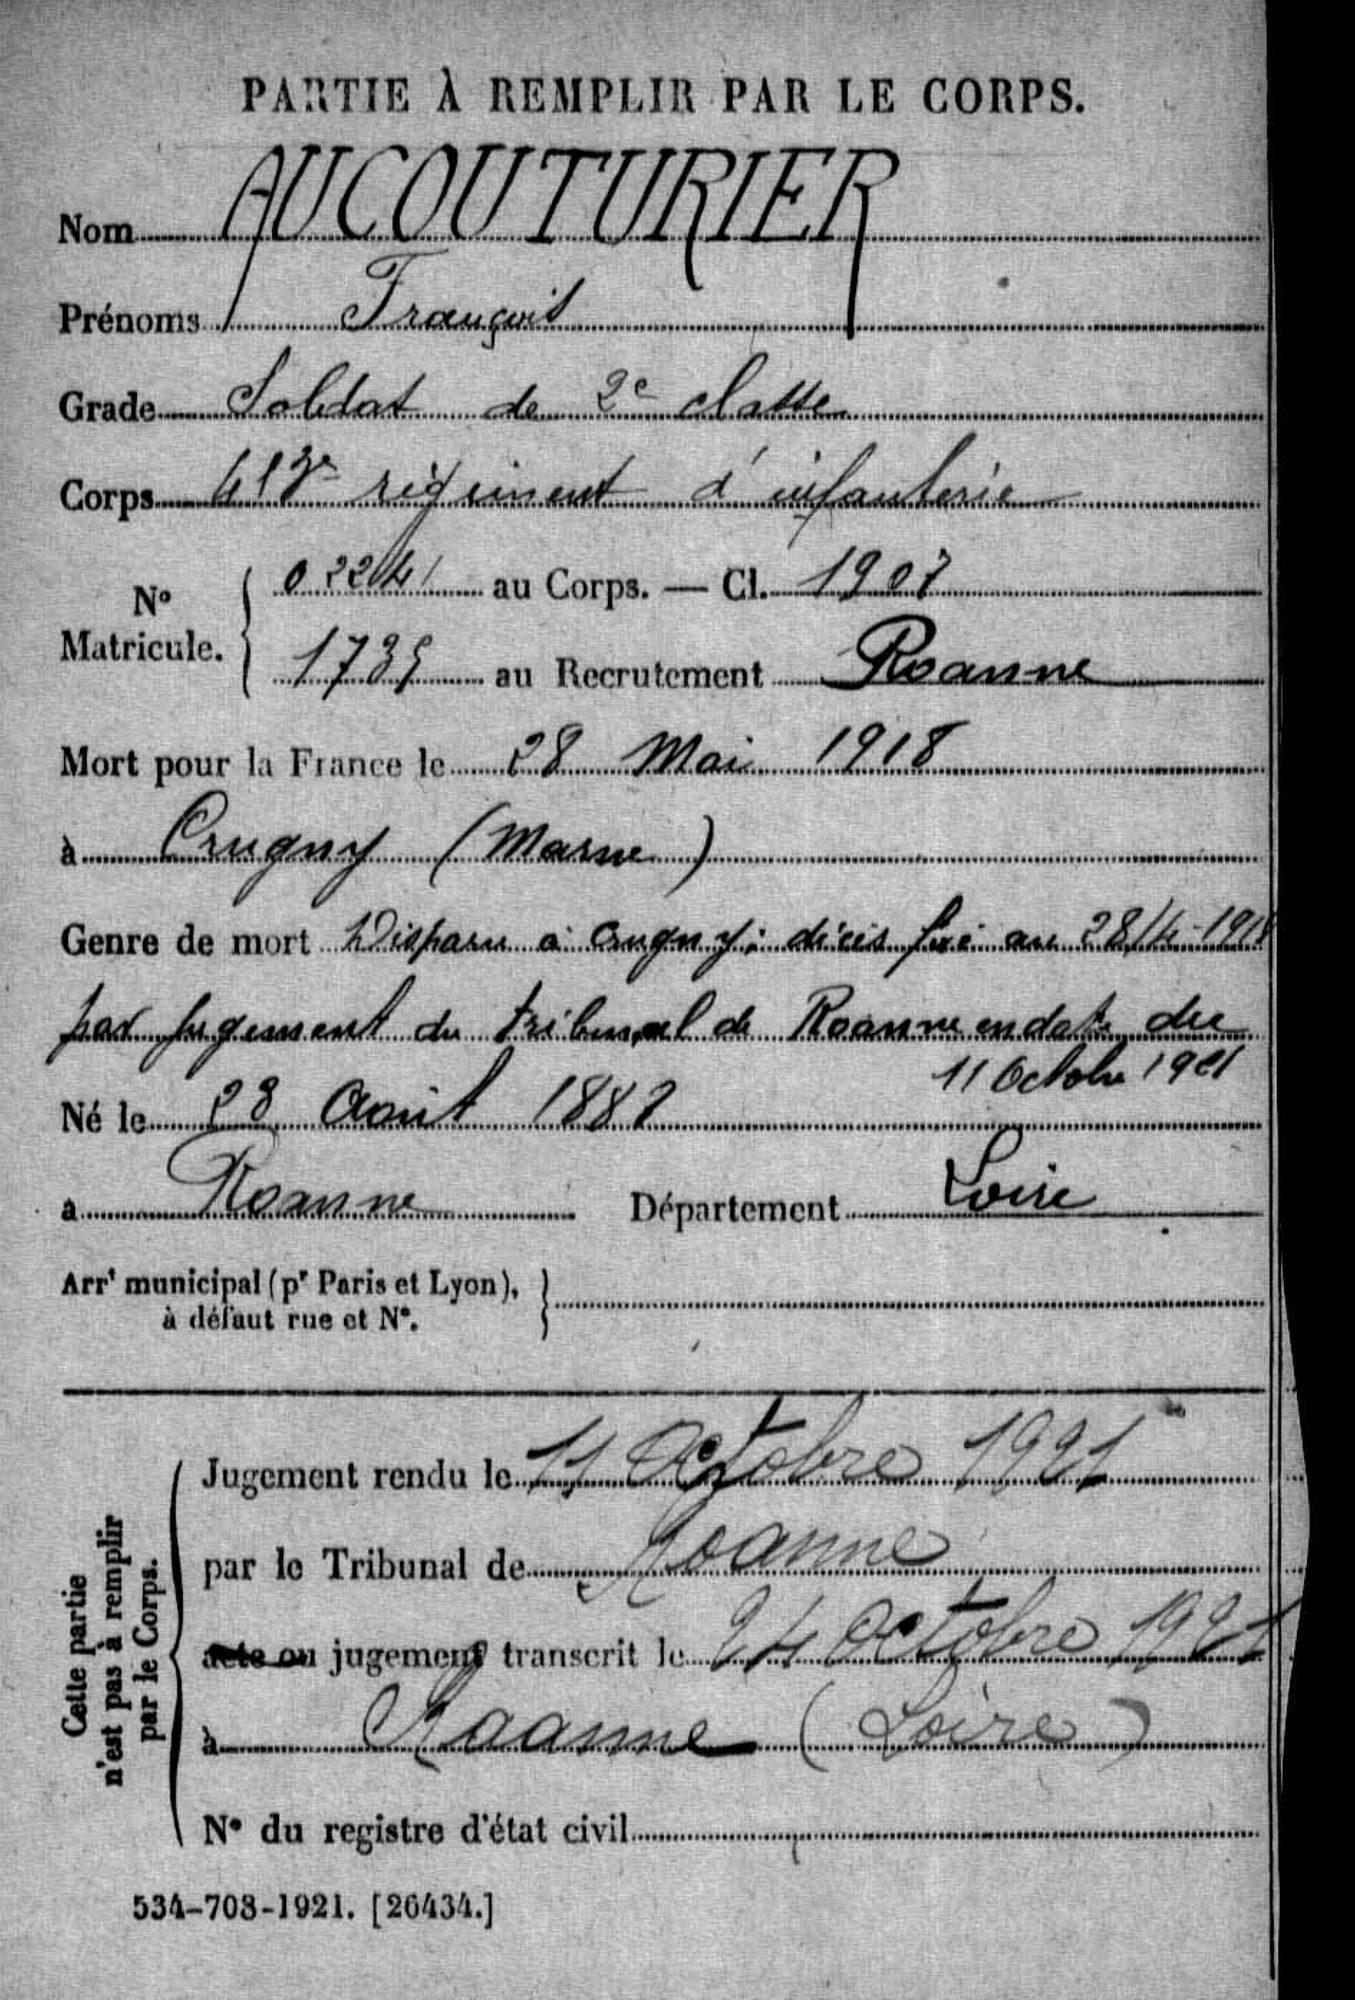 PARTIE À REMPLIR PAR LE CORPS.
Nom AUCOUTURIER
Prénoms François
Grade Soldat de 2e classe
Corps 413e régiment d'infanterie
N° Matricule. { 02241 au Corps. — Cl. 1907
1735 au Recrutement Roanne
Mort pour la France le 28 Mai 1918
à Crugny (Marne)
Genre de mort Disparu à Crugny; décès fixé au 28/4-1918
par jugement du tribunal de Roanne en date du
11 Octobre 1921
Né le 28 Août 1887
a Roanne Département Loire
Arrt municipal (pr Paris et Lyon), }
à défaut rue et N°.
Cette partie
n'est pas à remplir
par le Corps.
Jugement rendu le 11 Octobre 1921
par le Tribunal de Roanne
acte ou jugement transcrit le 24 Octobre 1921
à Roanne (Loire)
N° du registre d'état civil
534-708-1921. [26434.]